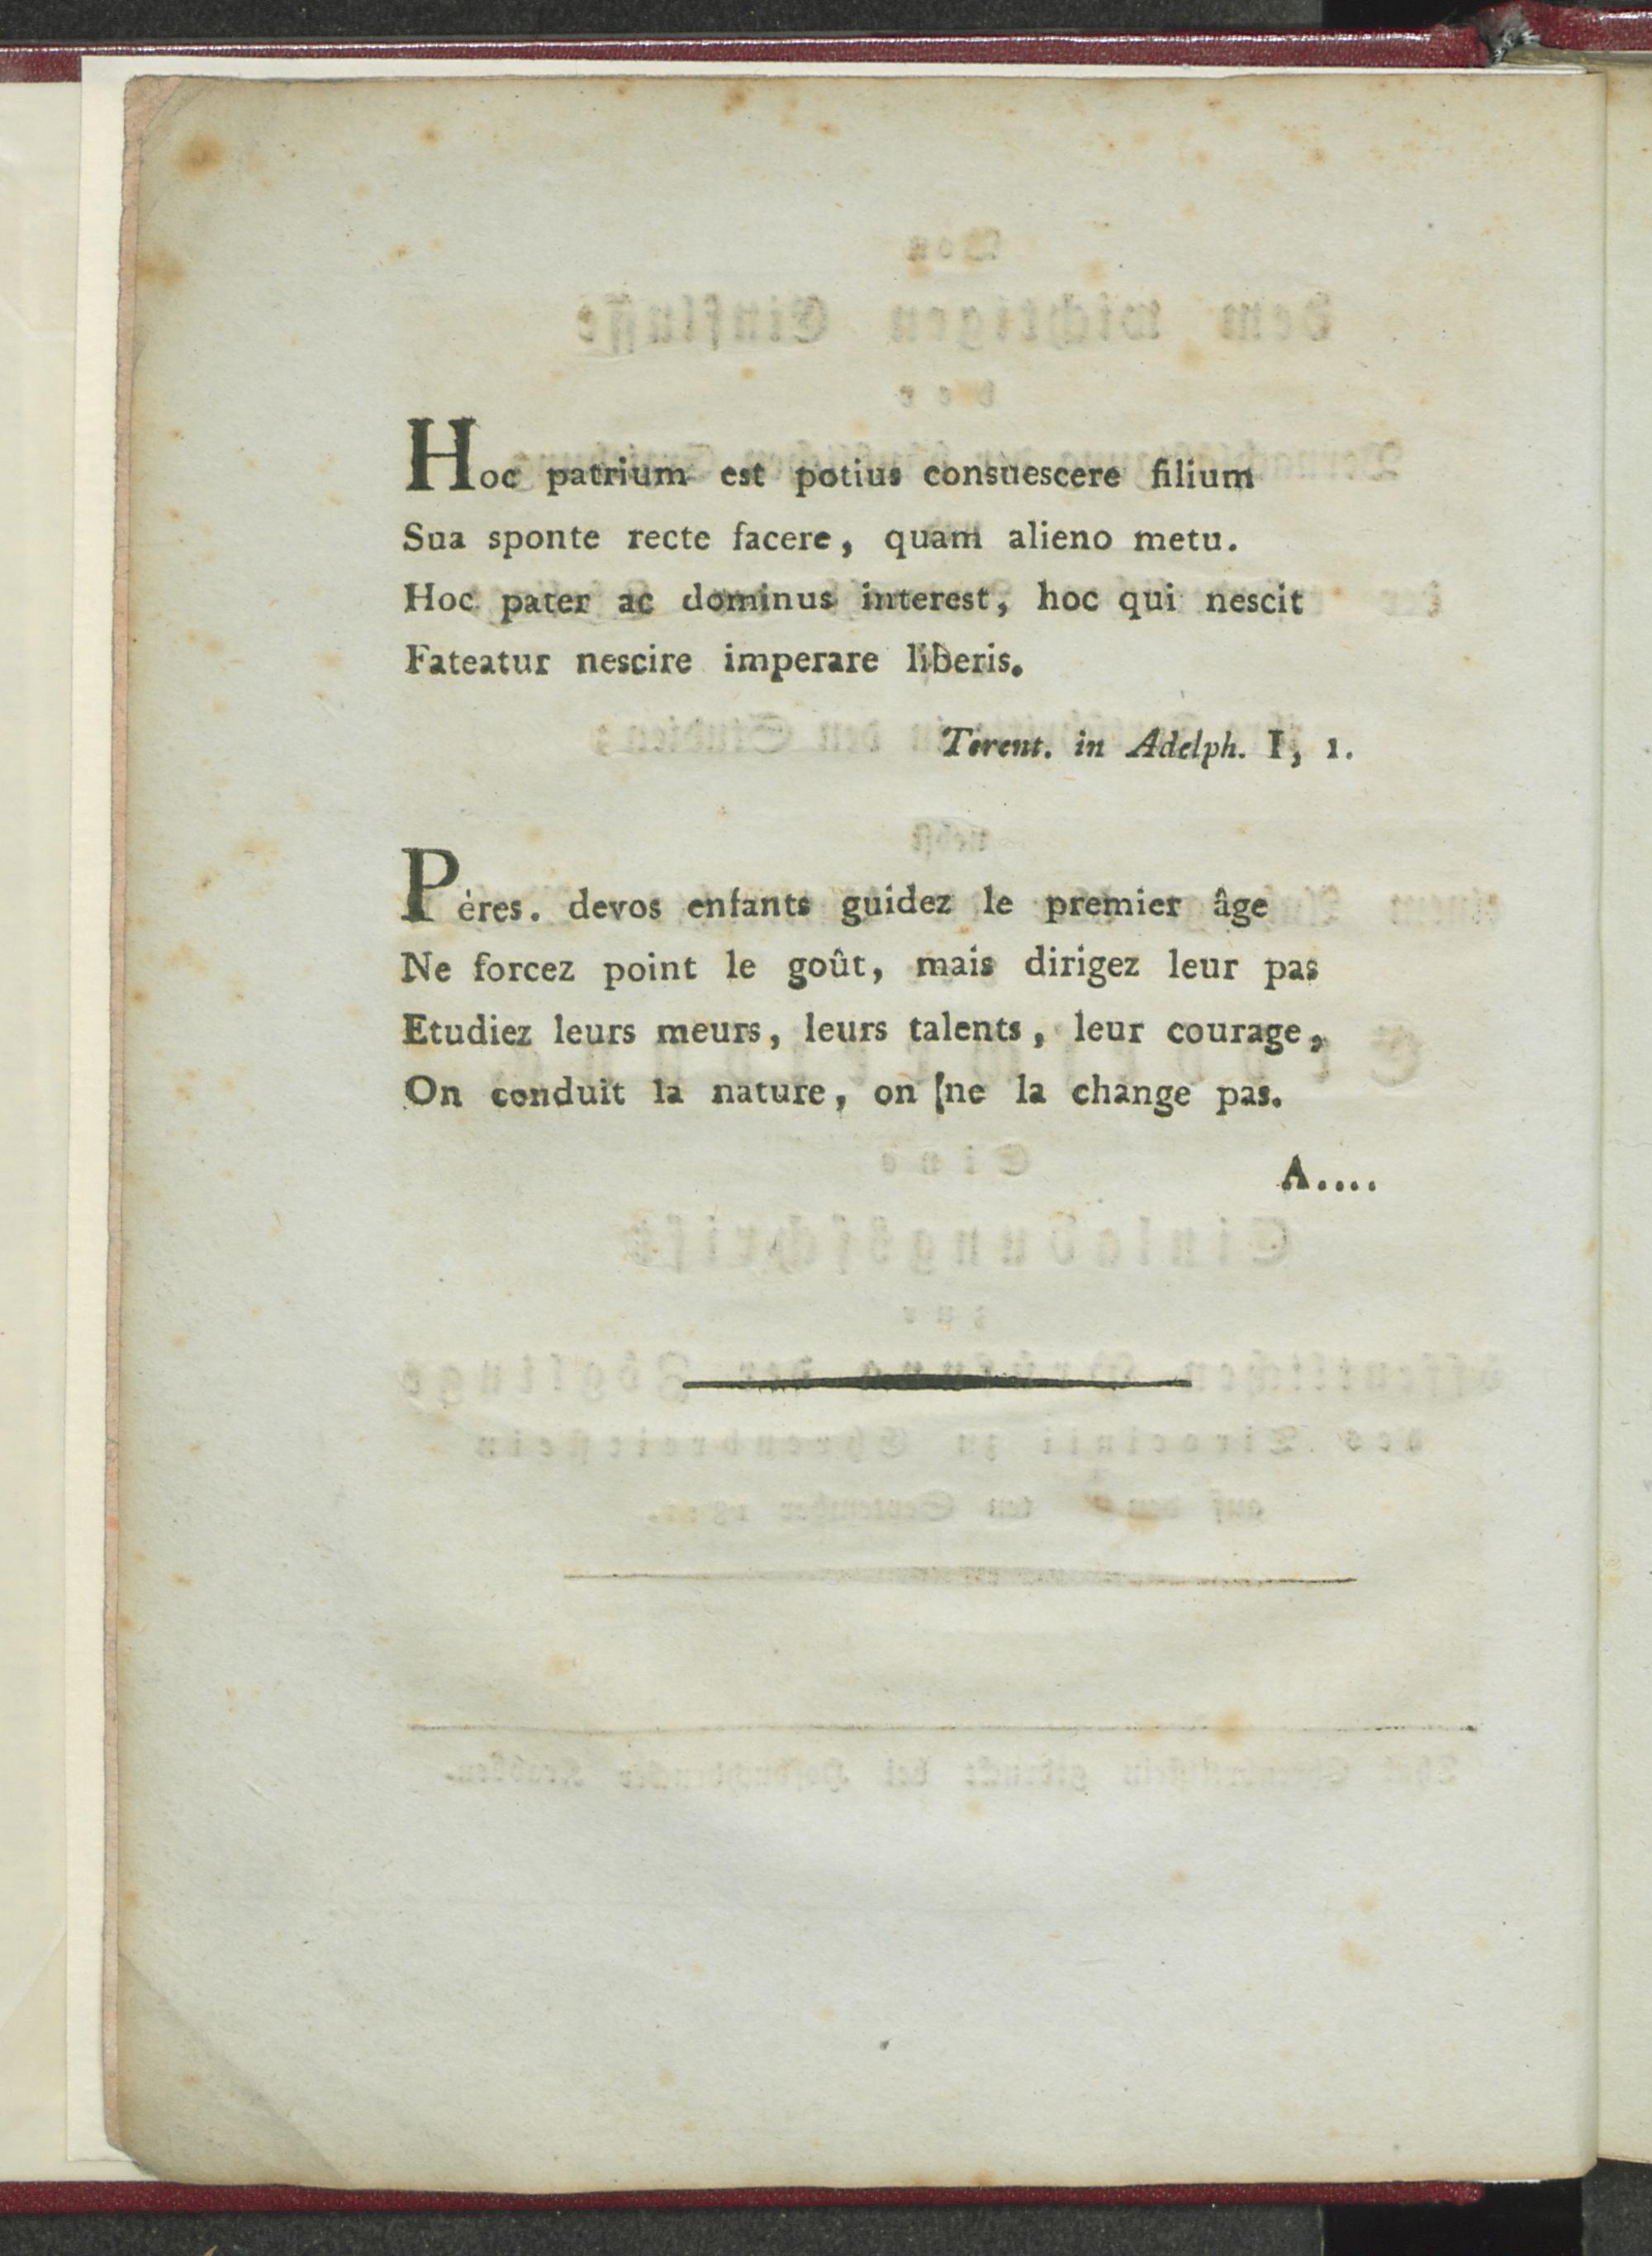 Hoc patrium est potius consuescere filium
Sua sponte recte facere, quam alieno metu.
Hoc pater ac dominus interest, hoc qui nescit
Fateatur nescire imperare liberis.
Terent. in Adelph. I, 1.
Pères. devos enfants guidez le premier âge
Ne forcez point le goût, mais dirigez leur pas
Etudiez leurs meurs, leurs talents, leur courage,
On conduit la nature, on [ne la change pas.
A....